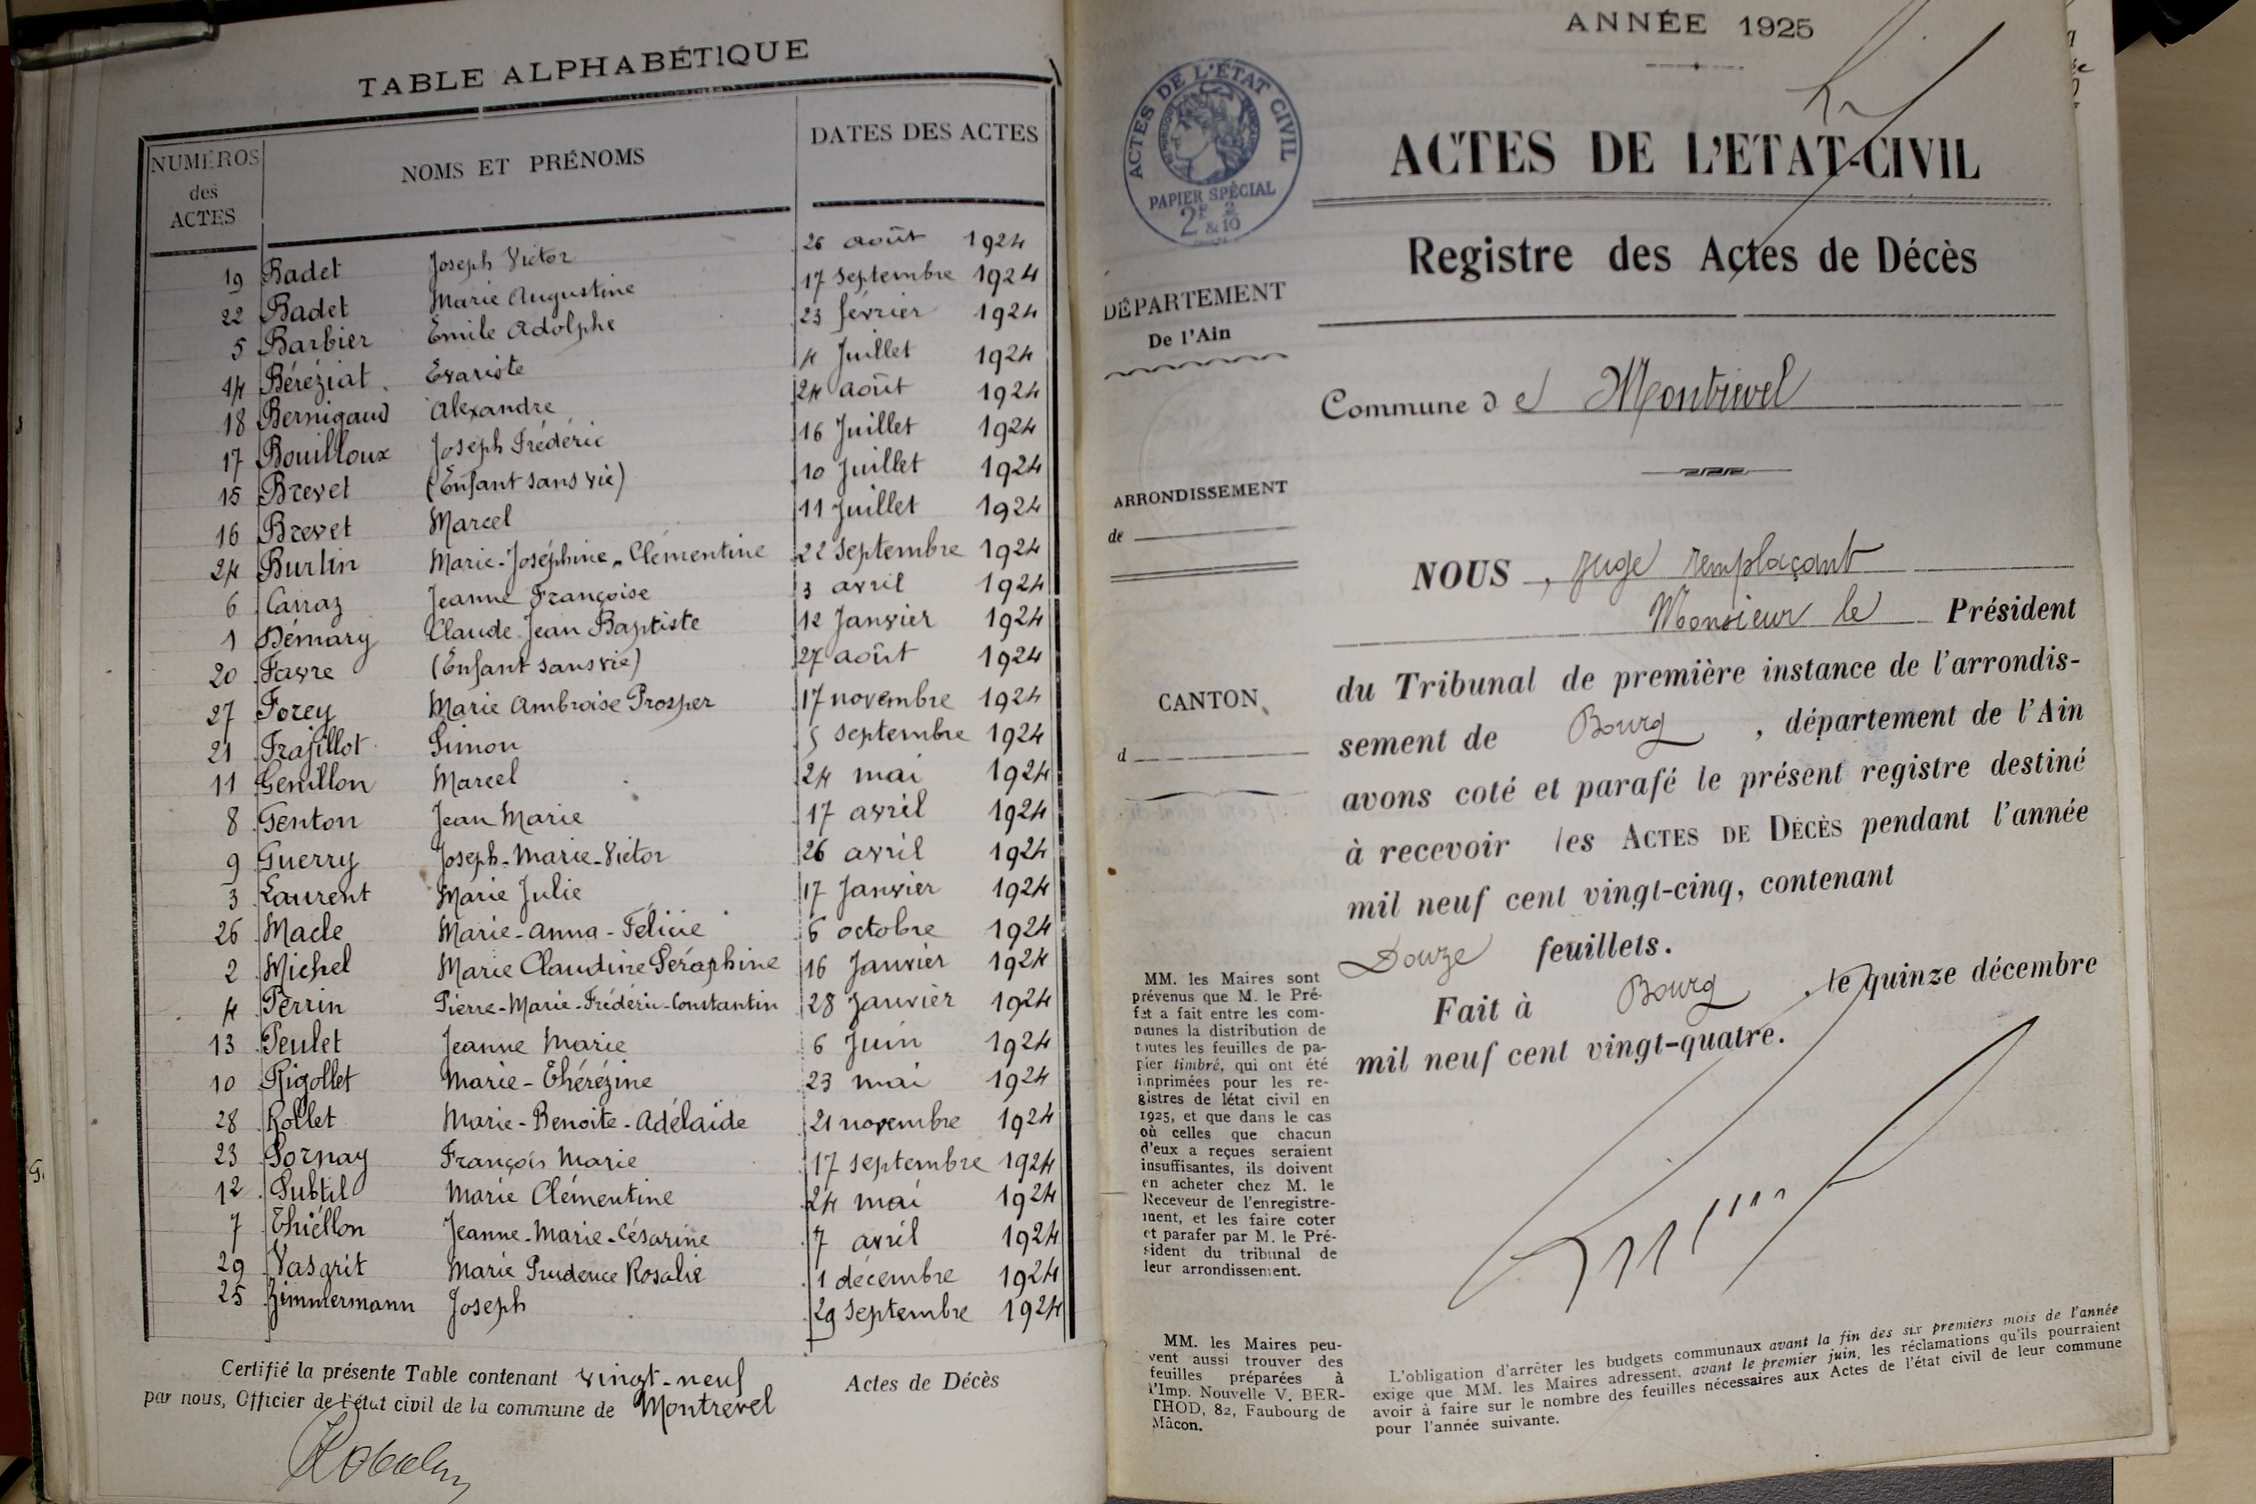 TABLE ALPHABÉTIQUE
NUMÉROS des ACTES NOMS ET PRÉNOMS DATES DES ACTES
19 Badet Joseph Victor 26 août 1924
22 Badet Marie Augustine 17 septembre 1924
5 Barbier Émile Adolphe 23 février 1924
14 Béréziat Evariste 4 Juillet 1924
18 Bernigaud Alexandre 24 août 1924
17 Bouilloux Joseph Frédéric 16 Juillet 1924
15 Brevet (Enfant sans vie) 10 Juillet 1924
16 Brevet Marcel 11 Juillet 1924
24 Burtin Marie-Joséphine-Clémentine 22 septembre 1924
6 Carraz Jeanne Françoise 3 avril 1924
1 Démary Claude Jean Baptiste 12 Janvier 1924
20 Favre (Enfant sans vie) 27 août 1924
27 Forey Marie Ambroise Prosper 17 novembre 1924
21 Frajillot Simon 5 septembre 1924
11 Genillon Marcel 24 mai 1924
8 Genton Jean Marie 17 avril 1924
9 Guerry Joseph-Marie-Victor 26 avril 1924
3 Laurent Marie Julie 17 Janvier 1924
26 Macle Marie-Anna-Félicie 6 octobre 1924
2 Michel Marie Claudine Séraphine 16 Janvier 1924
4 Perrin Pierre-Marie-Frédéric-Constantin 28 Janvier 1924
13 Peulet Jeanne Marie 6 Juin 1924
10 Rigollet Marie-Thérézine 23 mai 1924
28 Rollet Marie-Benoite-Adélaïde 21 novembre 1924
23 Sornay François Marie 17 septembre 1924
12 Subtil Marie Clémentine 24 mai 1924
7 Thiéllon Jeanne-Marie-Césarine 7 avril 1924
29 Vasarit Marie Prudence Rosalie 1 décembre 1924
25 Zimmermann Joseph 29 septembre 1924
Certifié la présente Table contenant vingt-neuf Actes de Décès
par nous, Officier de l'état civil de la commune de Montrevel
ANNÉE 1925
ACTES DE L'ÉTAT CIVIL
PAPIER SPÉCIAL
2F 2
&10
ACTES DE L'ETAT-CIVIL
Registre des Actes de Décès
DÉPARTEMENT
De l'Ain
Commune de Montrevel
ARRONDISSEMENT
de
CANTON
d
NOUS, juge remplaçant
Monsieur le Président
du Tribunal de première instance de l'arrondis-
sement de Bourg, département de l'Ain
avons coté et parafé le présent registre destiné
à recevoir les ACTES DE DÉCÈS pendant l'année
mil neuf cent vingt-cinq, contenant
Douze feuillets.
Fait à Bourg, le quinze décembre
mil neuf cent vingt-quatre.
MM. les Maires sont
prévenus que M. le Pré-
fet a fait entre les com-
munes la distribution de
toutes les feuilles de pa-
pier timbré, qui ont été
imprimées pour les re-
gistres de létat civil en
1925, et que dans le cas
où celles que chacun
d'eux a reçues seraient
insuffisantes, ils doivent
en acheter chez M. le
Receveur de l'enregistre-
ment, et les faire coter
et parafer par M. le Pré-
sident du tribunal de
leur arrondissement.
MM. les Maires peu-
vent aussi trouver des
feuilles préparées à
l'Imp. Nouvelle V. BER-
THOD, 82, Faubourg de
Mâcon.
L'obligation d'arrêter les budgets communaux avant la fin des six premiers mois de l'année
exige que MM. les Maires adressent, avant le premier juin, les réclamations qu'ils pourraient
avoir à faire sur le nombre des feuilles nécessaires aux Actes de l'état civil de leur commune
pour l'année suivante.